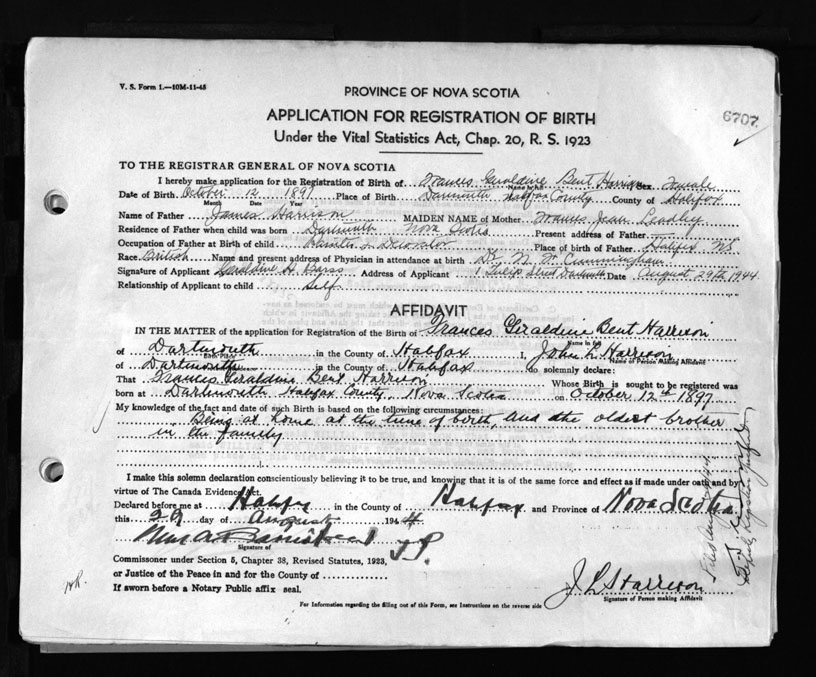 V. S. Form 1.—10M-11-43
PROVINCE OF NOVA SCOTIA
6707
APPLICATION FOR REGISTRATION OF BIRTH
Under the Vital Statistics Act, Chap. 20, R. S. 1923
TO THE REGISTRAR GENERAL OF NOVA SCOTIA
I hereby make application for the Registration of Birth of Frances Geraldine Bent Harrison Sex Female
Name in full
Date of Birth October 12 1897 Place of Birth Dartmouth Halifax County County of Halifax
Month Date Year
Name of Father James Harrison MAIDEN NAME of Mother Frances Jean
Residence of Father when child was born Dartmouth Nova Scotia Present address of Father
Occupation of Father at Birth of child Painter & Decorator Place of birth of Father Halifax NS
Race British Name and present address of Physician in attendance at birth Dr Cunningham
Signature of Applicant Geraldine H. Address of Applicant Tulip Street Dartmouth Date August 29th 1944
Relationship of Applicant to child Self
AFFIDAVIT
IN THE MATTER of the application for Registration of the Birth of Frances Geraldine Bent Harrison
Name in full
of Dartmouth in the County of Halifax I, John L Harrison
Birth Place Name of Person Making Affidavit
of Dartmouth in the County of Halifax do solemnly declare:
That Frances Geraldine Bent Harrison Whose Birth is sought to be registered was
born at Dartmouth Halifax County, Nova Scotia on October 12th 1897
My knowledge of the fact and date of such Birth is based on the following circumstances:
Being at home at the time of birth, and the oldest brother
in the family
I make this solemn declaration conscientiously believing it to be true, and knowing that it is of the same force and effect as if made under oath and by
virtue of The Canada Evidence Act.
Declared before me at Halifax in the County of Halifax and Province of Nova Scotia
this 29 day of August 1944
J.P.
Signature of
Commissoner under Section 5, Chapter 38, Revised Statutes, 1923,
or Justice of the Peace in and for the County of
If sworn before a Notary Public affix seal.
J. L. Harrison
Signature of Person making Affidavit
For Information regarding the filling out of this Form, see Instructions on the reverse side